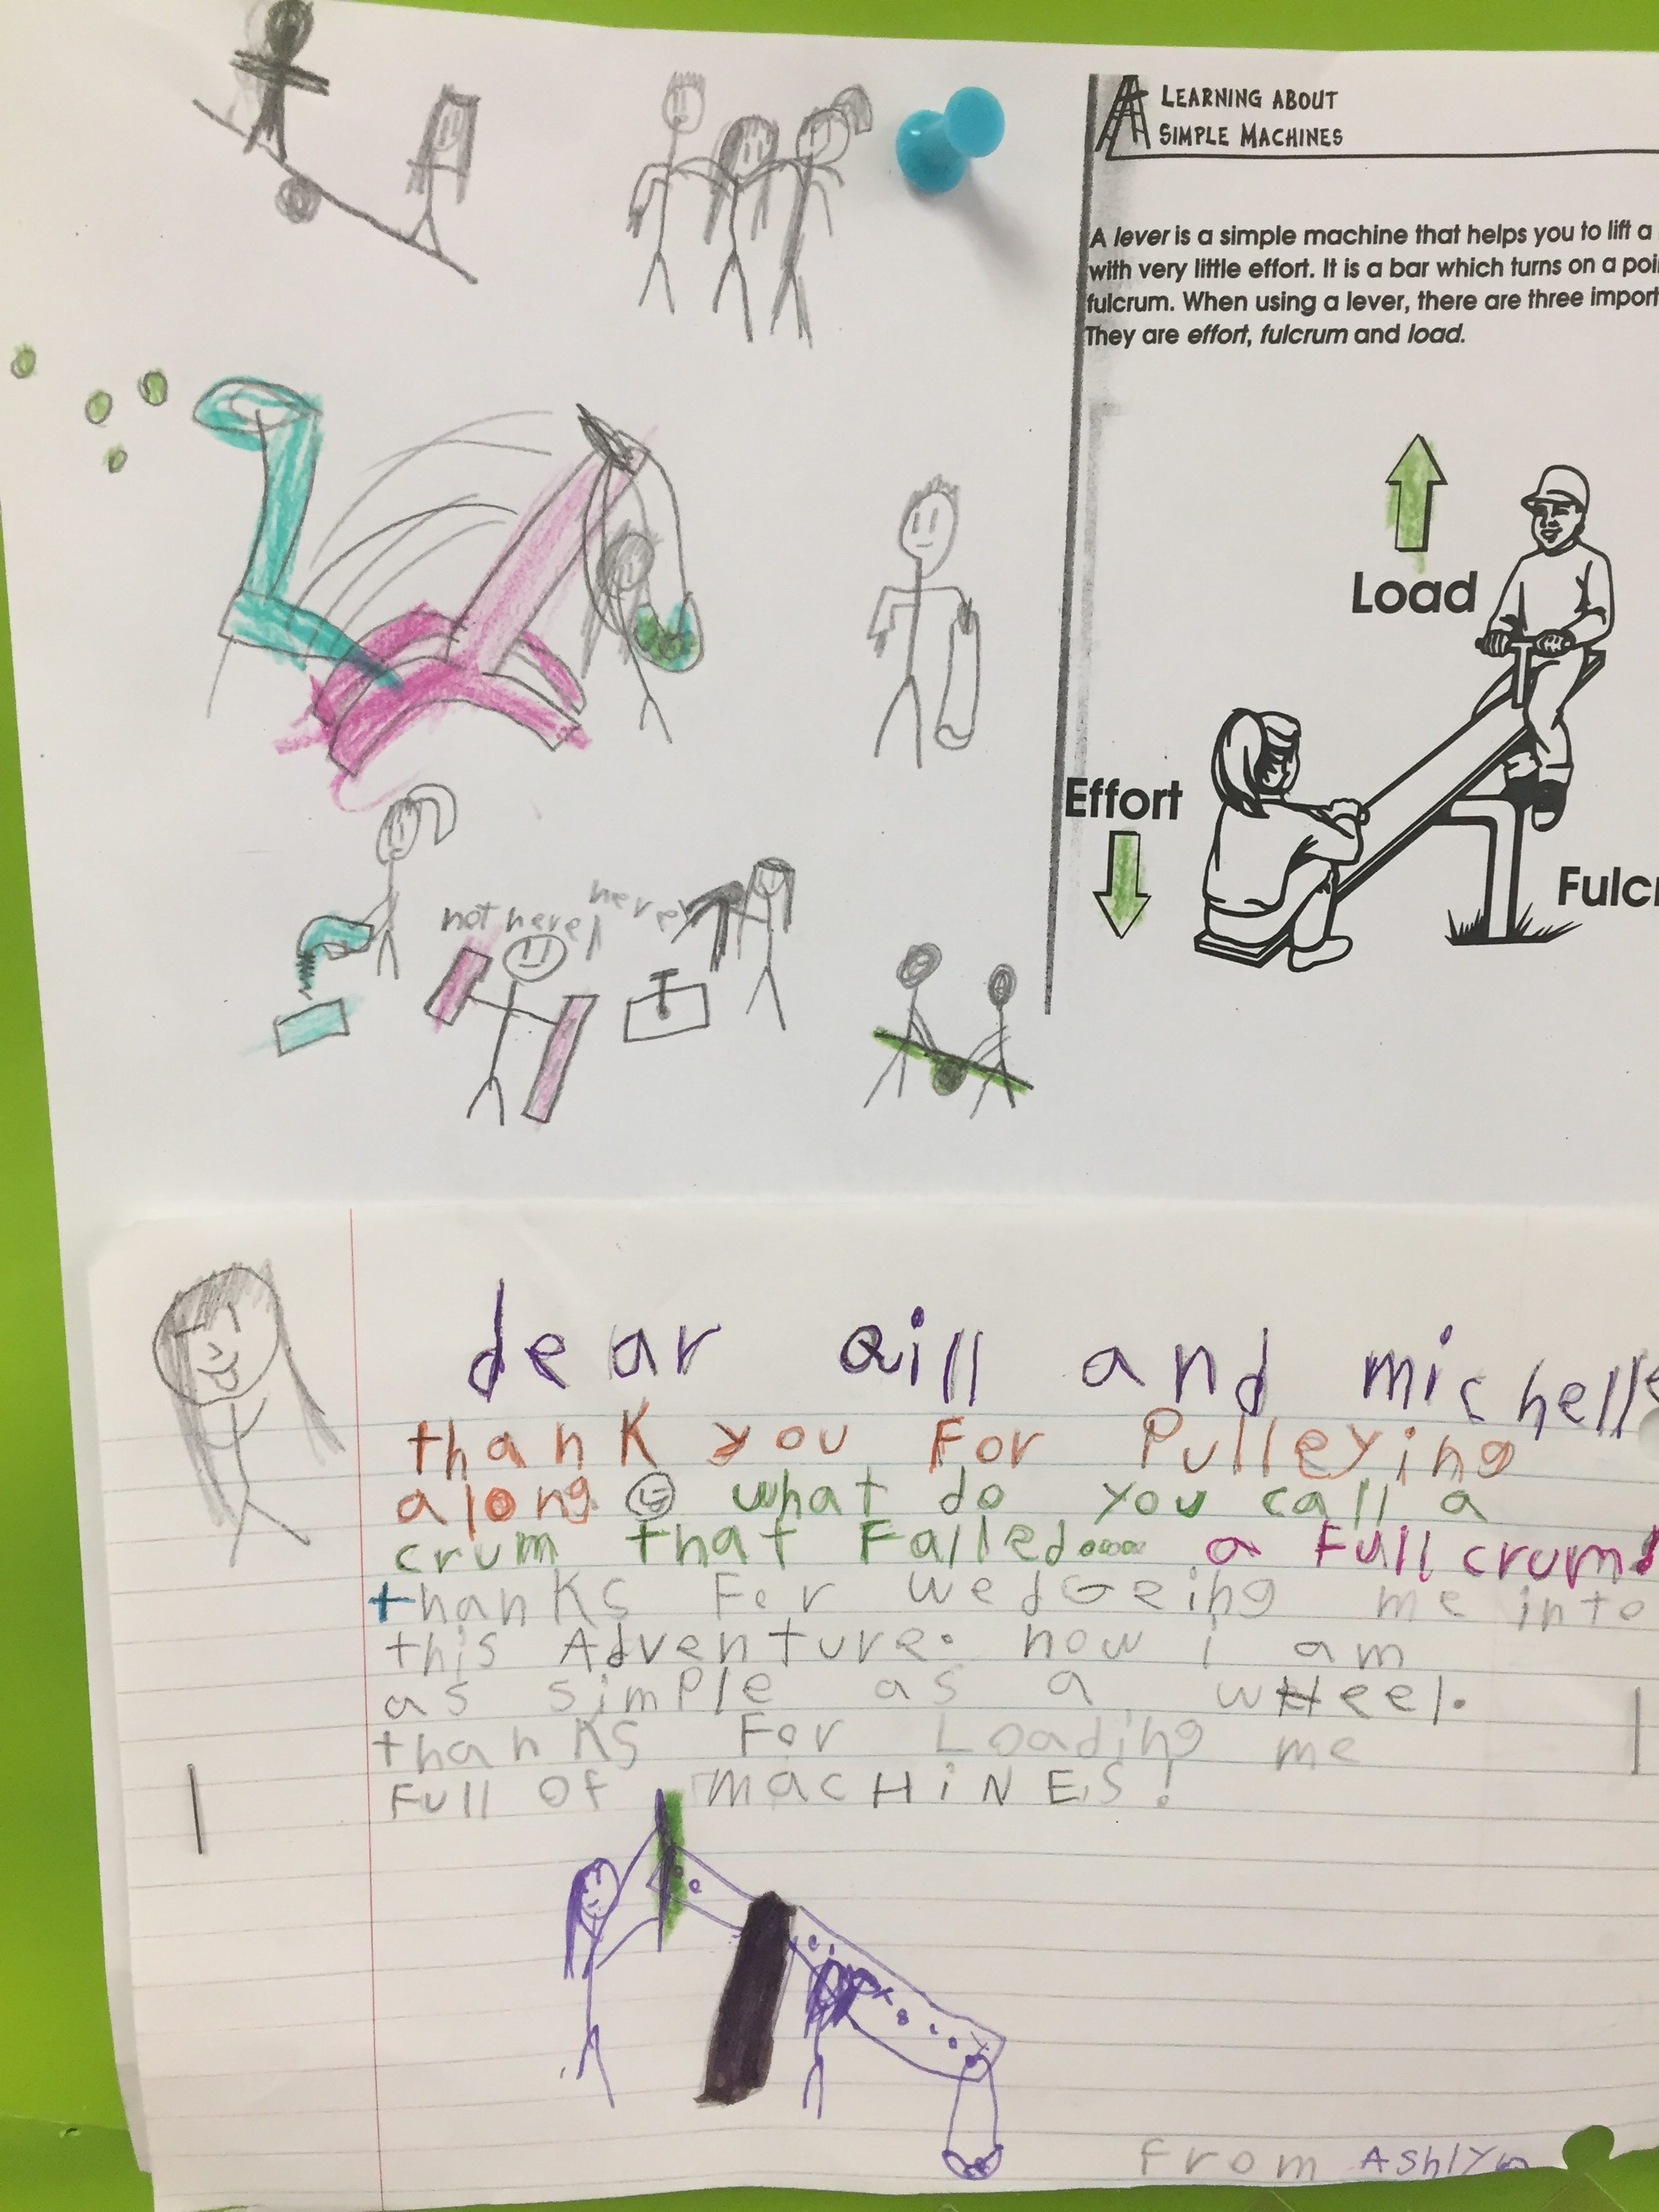 LEARNING ABOUT
SIMPLE MACHINES
A lever is a simple machine that helps you to lift a
with very little effort. It is a bar which turns on a poi
fulcrum. When using a lever, there are three import
They are effort, fulcrum and load.
Load
Effort
Fulcr
not here!
here
dear aill and michelle
thanK you For Pulleying
along what do you call a
crum that Falled.... a Full crum!
thanKs For wedGeing me into
this Adventure. now i am
as simPle as a wHeel.
thanKs For Loading me
Full OF macHiNES!
From AShlyn